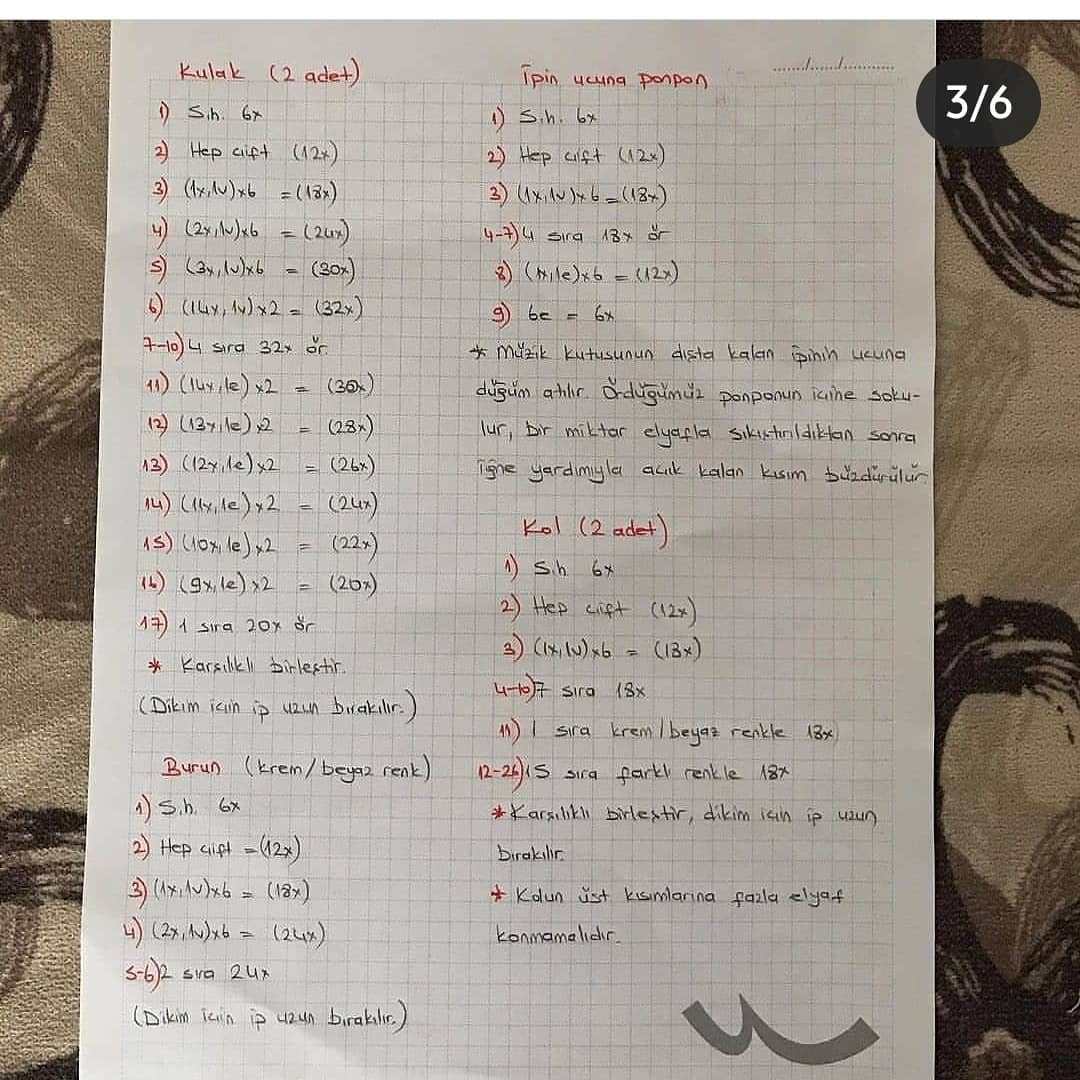 Kulak (2 adet)
1) S.h. 6x
2) Hep çift (12x)
3) (1x,1v)x6 = (18x)
4) (2x,1v)x6 = (24x)
5) (3x,1v)x6 = (30x)
6) (14x,1v)x2 = (32x)
7-10) 4 sıra 32x ör.
11) (14x,1e)x2 = (30x)
12) (13x,1e)x2 = (28x)
13) (12x,1e)x2 = (26x)
14) (11x,1e)x2 = (24x)
15) (10x,1e)x2 = (22x)
16) (9x,1e)x2 = (20x)
17) 1 sıra 20x ör
* Karşılıklı birleştir.
(Dikim için ip uzun bırakılır.)
Burun (krem/beyaz renk)
1) S.h. 6x
2) Hep çift =(12x)
3) (1x,1v)x6 = (18x)
4) (2x,1v)x6 = (24x)
5-6) 2 sıra 24x
(Dikim için ip uzun bırakılır.)
İpin ucuna ponpon
1) S.h. 6x
2) Hep çift (12x)
3) (1x,1v)x6=(18x)
4-7) 4 sıra 18x ör
8) (1x,1e)x6 = (12x)
9) 6e = 6x
* Müzik kutusunun dışta kalan ipinin ucuna
düğüm atılır. Ördüğümüz ponponun içine soku-
lur, bir miktar elyafla sıkıştırıldıktan sonra
iğne yardımıyla açık kalan kısım büzdürülür.
Kol (2 adet)
1) S.h 6x
2) Hep çift (12x)
3) (1x,1v)x6 = (18x)
4-10) 7 sıra 18x
11) 1 sıra krem/beyaz renkle 18x
12-26) 15 sıra farklı renkle 18x
* Karşılıklı birleştir, dikim için ip uzun
bırakılır.
* Kolun üst kısımlarına fazla elyaf
konmamalıdır.
...../...../..........
3/6